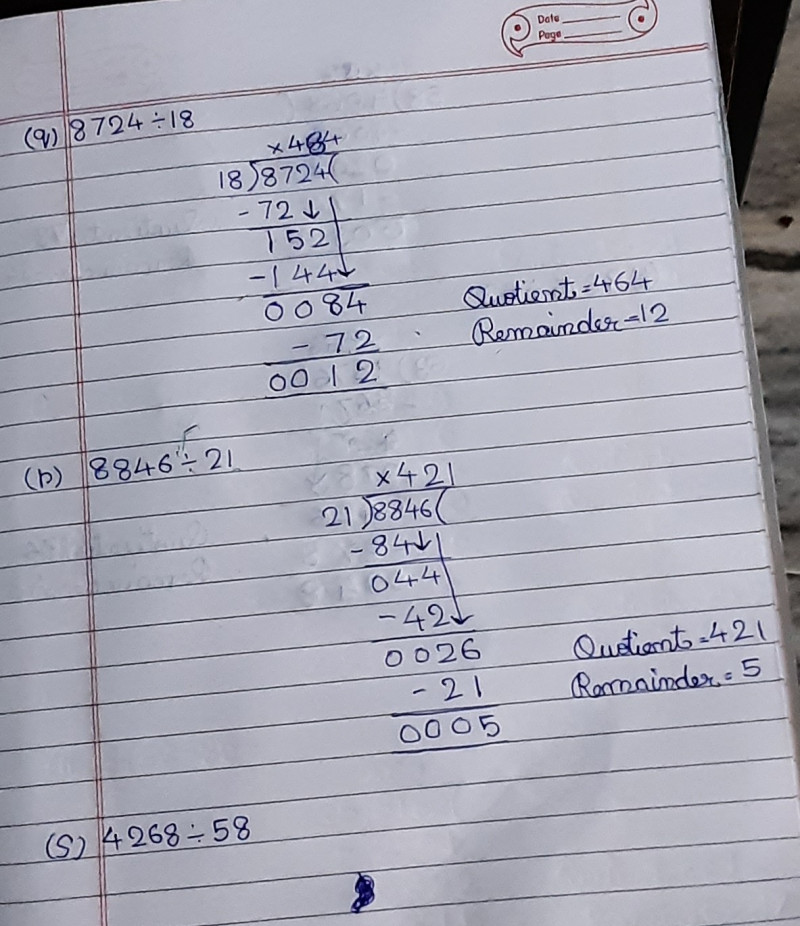 Date
Page
(q) 8724÷18
×484
18)8724(
-72↓
152
-144↓
0084
Quotient=464
- 72
Remainder=12
0012
(r) 8846÷21
×421
21)8846(
-84↓
044
-42↓
0026
Quotient=421
-21
Remainder=5
0005
(S) 4268÷58